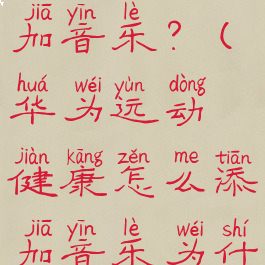 jiā yīn lè
加音乐？（
huá wéi yùn dòng
华为远动
jiàn kāng zěn me tiān
健康怎么添
jiā yīn lè wéi shí
加音乐为什